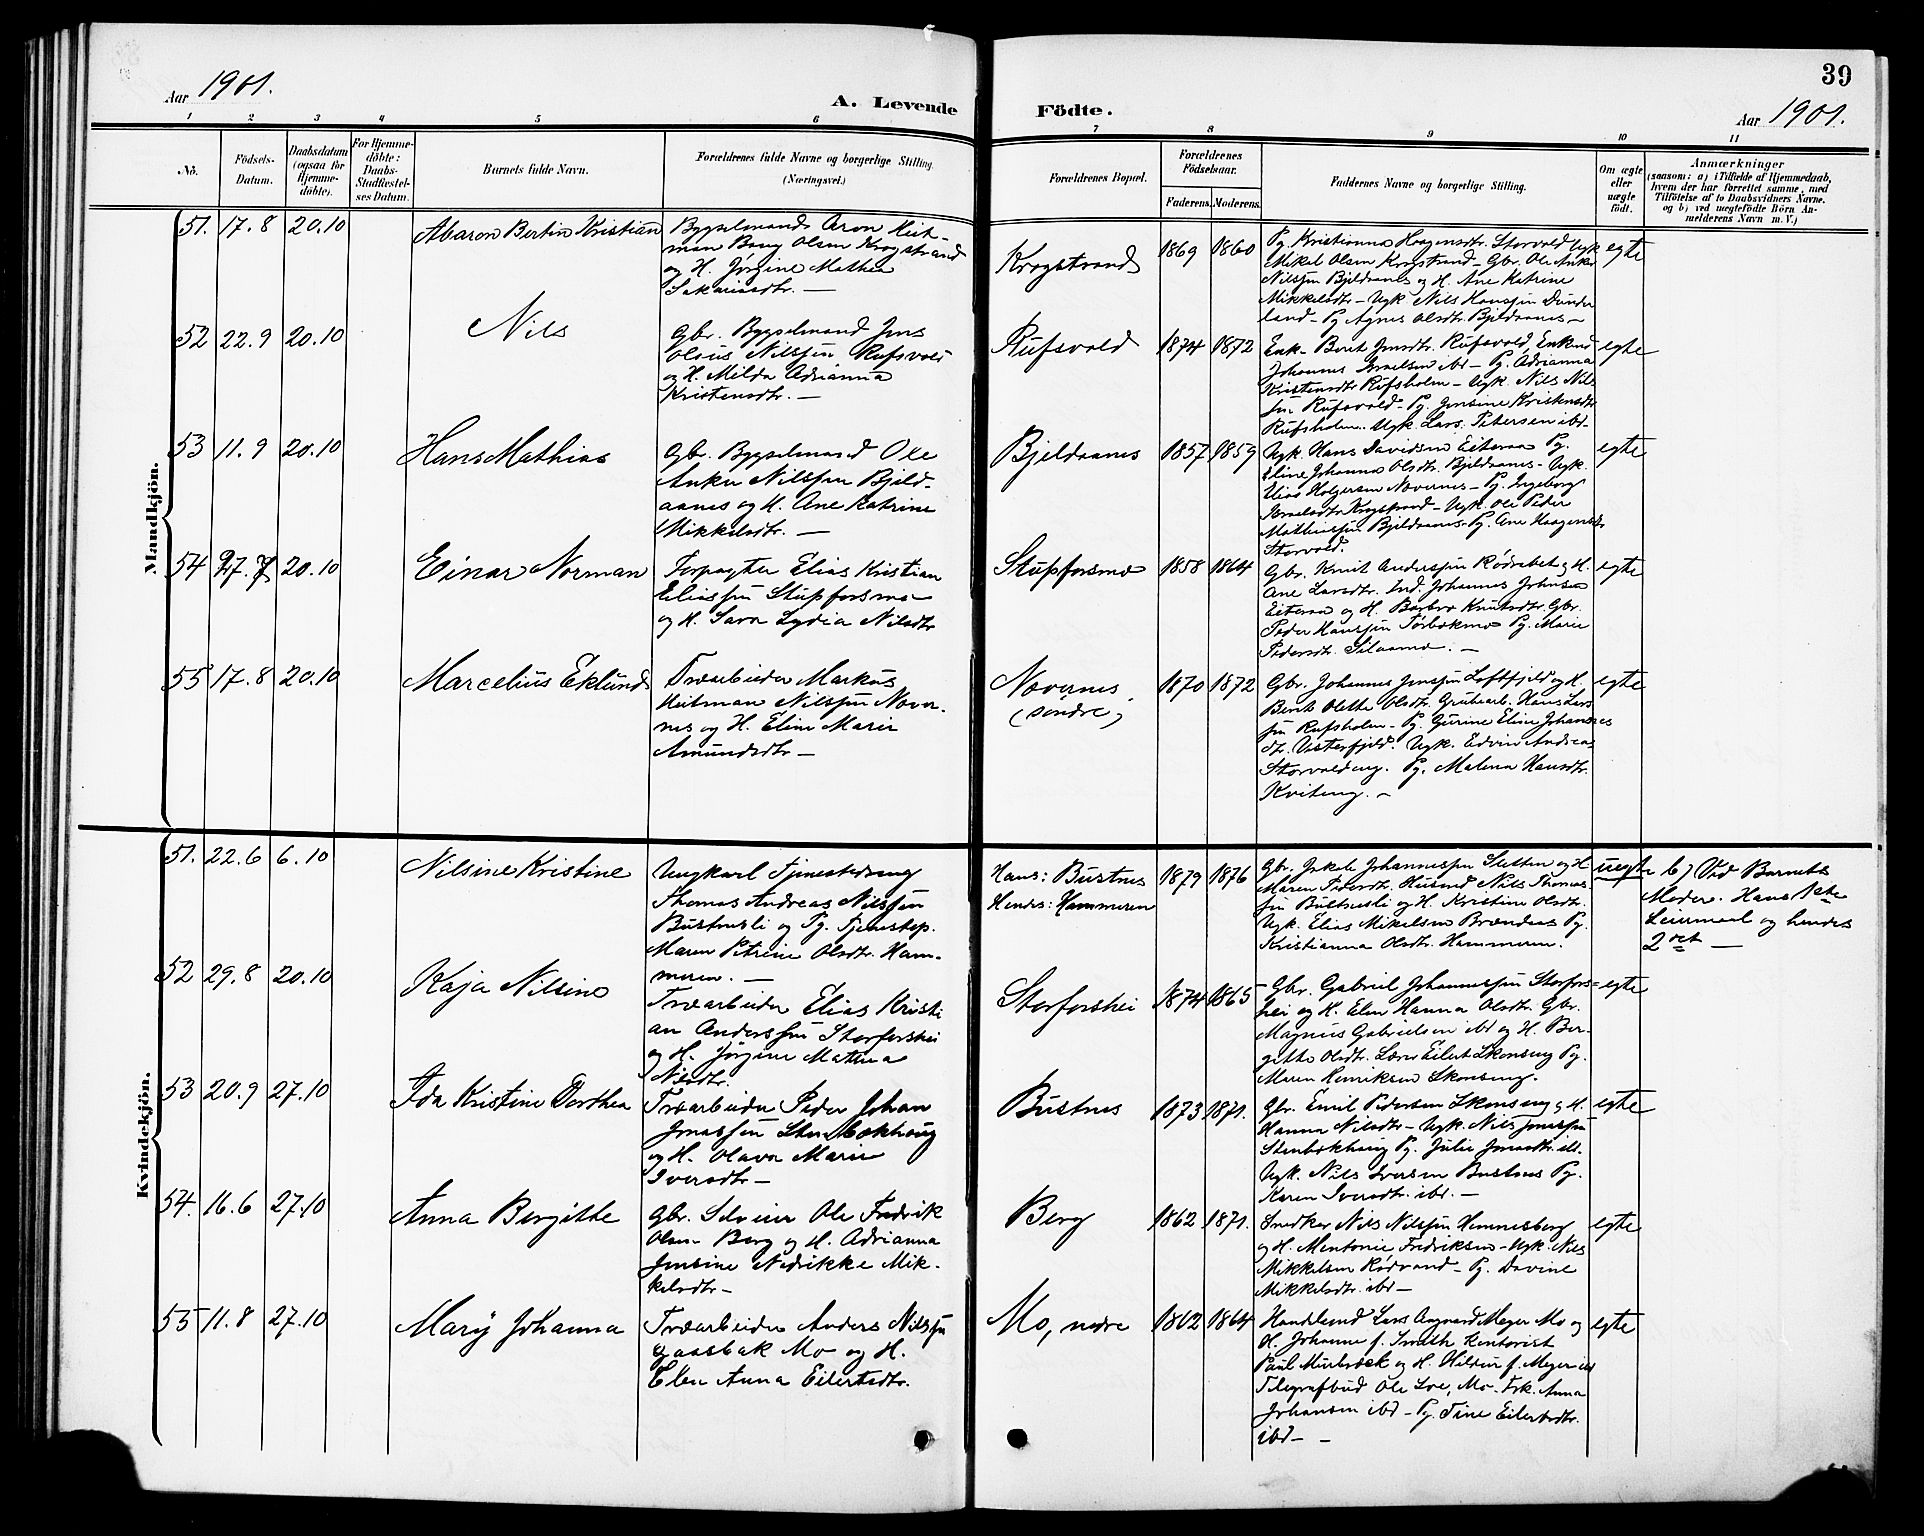 39
Aar 1901.
A. Levende
Födte.
Aar 1901.
1 2 3 4 5 6 7 8 9 10 11
No.
Födsels-
Datum.
Daabsdatum
(ogsaa for
Hjemme-
döbte).
For Hjemme-
döbte:
Daabs-
Stadfæstel-
ses Datum.
Barnets fulde Navn.
Forældrenes fulde Navne og borgerlige Stilling.
(Næringsvei.)
Forældrenes Bopæl.
Forældrenes
Födselsaar.
Faderens. Moderens.
Faddernes Navne og borgerlige Stilling.
Om ægte
eller
uægte
født.
Anmærkninger
(saasom: a) i Tilfælde af Hjemmedaab,
hvem der har forrettet samme, med
Tilföielse af to Daabsvidners Navne.
og b) ved uægtefödte Börn An-
melderens Navn m. V.)
Mandkjön.
51. 17.8 20.10
Aharon Bertin Kristian
Bygselmand Aron Heit-
man Berg Olsen Krogstrand
og H. Jørgine Mathea
Sakariasdtr. —
Krogstrand
1869 1860
Pg. Kristianna Haagensdtr. Storvold Ugk
Mikal Olsen Krogstrand – Gbr. Ole Anker
Nilssen Bjeldaanes og H. Ane Katrine
Mikkelsdtr – Ugk Nils Hanssen Dunder
land – Pg Agnes Olsdtr. Bjeldaanes –
egte
52 22.9 20.10
Nils
Gbr. Bygselmand Jens
Olaus Nilssen Rufsvold
og H. Milda Adrianna
Kristensdtr. —
Rufsvold
1874 1872
Enk– Berit Jensdtr. Rufsvold, Enkmd
Johannes Israelsen ibd – Pg. Adrianna
Kristensdtr Rufsholm – Ugk. Nils Nils
sen Rufsvold – Pg. Jensine Kristensdtr
Rufsholm. Ugk. Lars Petersen ibd–
egte
53 11.9 20.10
Hans Mathias
Gbr. Bygselmand Ole
Anker Nilssen Bjeld-
aanes og H. Ane Katrine
Mikkelsdtr. —
Bjeldaanes
1857 1859
Ugk. Hans Davidsen Eiteraa Pg.
Eline Johanna Olsdtr. Bjeldaanes – Ugk.
Elias Holgersen Nævernes – Pg. Ingeborg
Israelsdtr Krogstrand – Ugk. Ole Peder
Mathiassen Bjeldaanes. Pg. Ane Haagensdtr
Storvold.
egte
54 27.7 20.10
Einar Norman
Forpagter Elias Kristian
Eliassen Stupforsmo
og H. Sara Lydia Nilsdtr
Stupforsmo
1858 1864
Gbr. Knut Anderssen Rødsebet og H.
Ane Larsdtr. Ind. Johannes Johnsen
Eiteraa og H. Barbro Knutsdtr. Gbr.
Peder Hanssen Tørbækmo Pg. Marie
Pedersdtr. . —
egte
55 17.8 20.10
Marcelius Eklund
Træarbeider Markus
Heitman Nilssen Never-
nes og H. Eline Marie
Amundsdtr —
Nævernes
(søndre)
1870 1872
Gbr. Johannes Jenssen Loftfjeld og H.
Berit Olette Olsdtr. Grubearb. Hans Lars
sen Rufsholm – Pg. Gurine Eline Johannes
dtr. Vesterfjeld. Ugk. Edvin Andreas
Storvoldeng. Pg. Malena Hansdtr.
Kviteng. –
egte
Kvindekjön.
51. 22.6 6.10
Nilsine Kristine
Ungkarl Tjenestedreng
Thomas Andreas Nilssen
Bustnesli og Pg. Tjenestep.
Maren Petrine Olsdtr. Ham-
meren. —
Hans: Bustnes
Hendes: Hammeren
1879 1876
Gbr. Johannessen Sletten og H.
Maren Pedersdtr. Husmd Nils Thomas
sen Bustnesli og H. Kristine Olsdtr.
Ugk. Elias Mikelsen Brændaas Pg.
Kristianna Olsdtr. Hammeren.
uegte
b) Ved Barnets
Moder. Hans 1ste
Leiermaal og hendes
2det —
52 29.8 20.10
Kaja Nilsine
Træarbeider Elias Kristi
an Anderssen Storforshei
og H. Jørgine Mathea
Nilsdtr.
Storforshei
1874 1865
Gbr. Gabriel Johannessen Storfors-
hei og H. Elen Hanna Olsdtr. Gbr.
Magnus Gabrielsen ibd og H. Ber-
gitte Olsdtr. Lærer Eilert Skonseng Pg.
Maren Henriksen Skonseng.
egte
53 20.9 27.10
Ida Kristine Dorthea
Træarbeider Peder Johan
Jonassen Stenbækhaug
og H. Olava Marie
Iversdtr —
Bustnes
1873 1871.
Gbr. Emil Pedersen Skonseng og H.
Hanna Nilsdtr – Ugk. Nils Jonassen
Stenbækhaug Pg. Julie Jonasdtr ibd.
Ugk. Nils Iversen Bustnes Pg.
Karen Iversdtr. ibd. —
egte
54. 16.6 27.10
Anna Bergitte
Gbr. Selveier Ole Fredrik
Olsen Berg og H. Adrianna
Jensine Nedrikke Mik-
kelsdtr –
Berg
1862 1871.
Snedker Nils Nilssen Hemnesberg
og H. Mentonie Fredriksen – Ugk. Nils
Mikkelsen Rødvand – Pg. Davine
Mikkelsdtr. ibd —
egte
55 11.8 27.10
Mary Johanna
Træarbeider Anders Nilssen
Gaasbak Mo og H.
Elen Anna Eilertsdtr.
Mo, nedre
1862 1864
Handlsmd Lars Aagaard Meyer Mo og
H. Johanne f. Smith Kontorist
Paul Murbræk og H. Hildur f. Meyer ibd
Telegrafbud Ole Loe, Mo – Frk. Anna
Johansen ibd – Pg. Tine Eilertsdtr.
ibd – –
egte